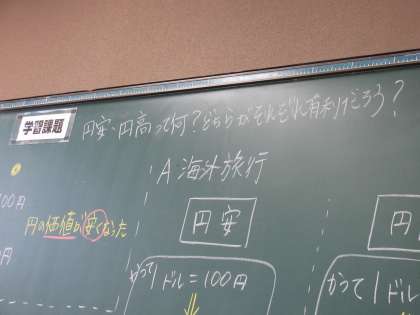 学習課題
円安・円高って何？どちらがそれぞれ有利だろう？
A 海外旅行
00円
円の価値が安くなった
円
円安
円
かつて
1ドル=100円
かつて
1ドル